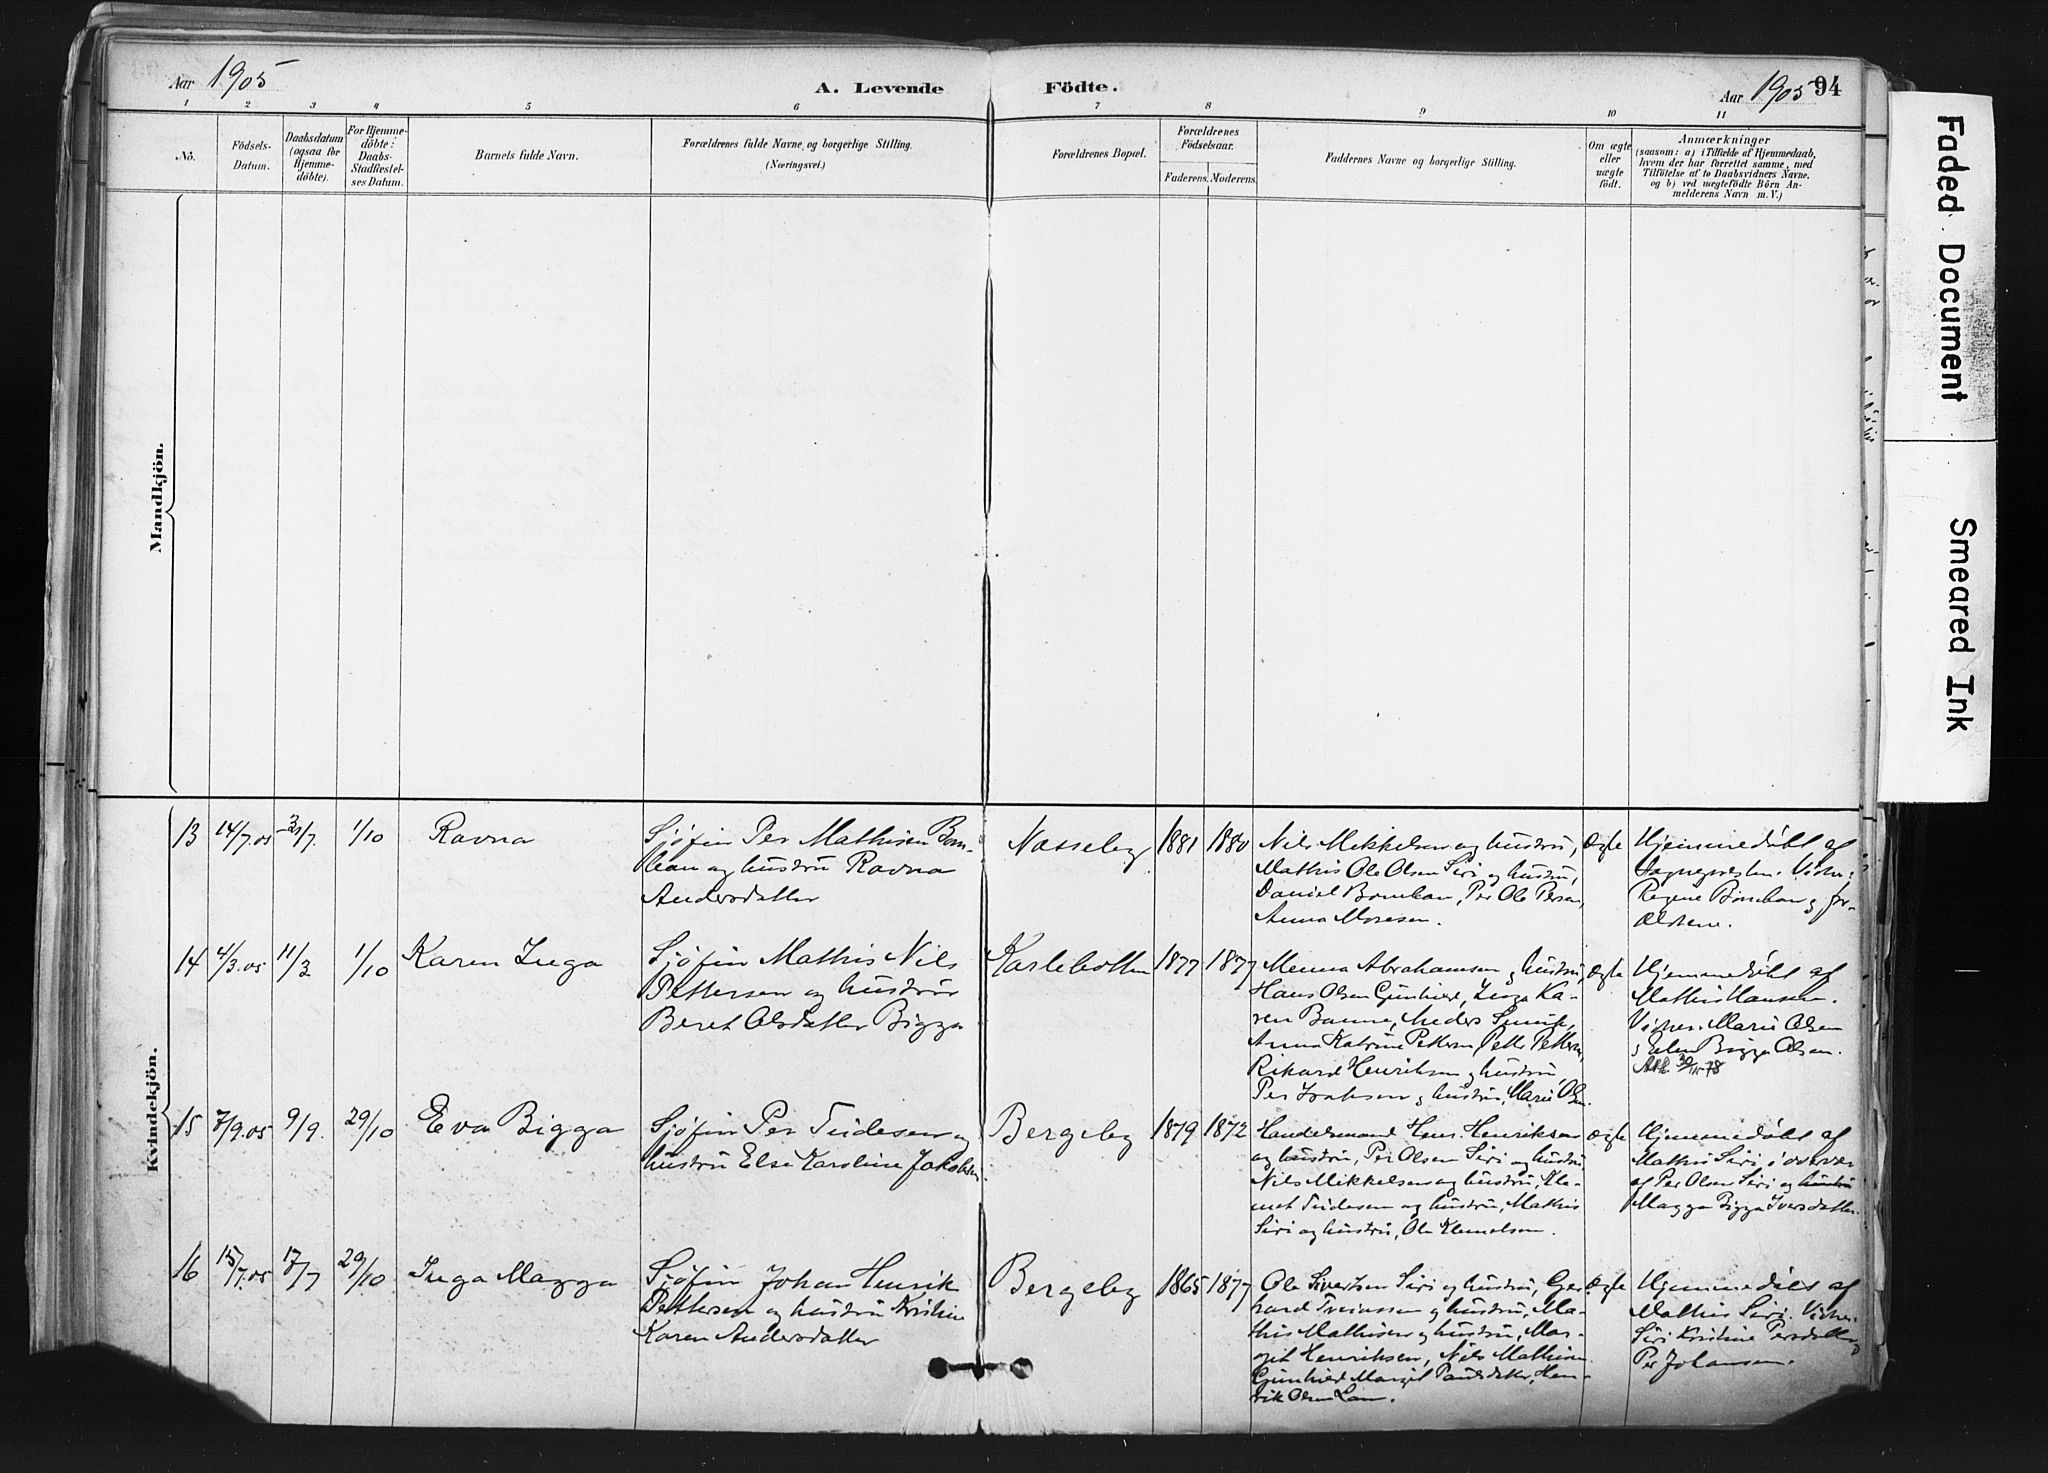 Aar 1905
A. Levende Födte.
Aar 1905 94
1 2 3 4 5 6 7 8 9 10 11
No.
Födsels-Datum.
Daabsdatum (ogsaa for Hjemmedöbte).
For Hjemmedöbte: Daabs-Stadfæstelses Datum.
Barnets fulde Navn.
Forældrenes fulde Navne og borgerlige Stilling.
(Næringsvei.)
Forældrenes Bopæl.
Forældrenes Födselsaar.
Faderens. Moderens.
Faddernes Navne og borgerlige Stilling.
Om ægte eller uægte födt.
Anmærkninger
(saasom: a) i Tilfælde af Hjemmedaab,
hvem der har forrettet samme, med
Tilföielse af to Daabsvidners Navne,
og b) ved uægtefödte Börn An-
melderens Navn m. V.)
Mandkjön.
Kvindekjön.
13 14/7.05 1/10 Ravna
Sjöfin Per Mathisen Bom-
ban og hustru Ravna
Andersdatter
Nesseby 1881 1880
Nils Mikkelsen og hustru,
Mathis Ole Olsen Siri og hustru,
Daniel Bomban, Per Ole Persen,
Anna Mosesen.
Ægte
Hjemmedöbt af
Sognepresten. Vidner:
Regine Bomban og for-
ældrene.
14 4/3.05 11/3 1/10 Karen Inga
Sjöfin Mathis Nils
Pettersen og hustru
Beret Olsdatter Bigga
Karlebotten 1877 1877
Menna Abrahamsen og hustru,
Hans Olsen Gunhild, Inga Ka-
ren Banne, Anders
Anna Katrine Pettersen, Petter Pettersen,
Rikard Henriksen og hustru
Per Isaksen og hustru, Marie Olsen.
Ægte
Hjemmedöbt af
Mathis Hansen.
Vidner: Marie Olsen
og Ellen Bigga Olsen.
30/11-78
15 7/9.05 9/9. 29/10 Eva Bigga
Sjöfin Per Tudesen og
hustru Else Karoline Jakobsen.
Bergeby 1879 1872
Handelsmand Hans Henriksen
og hustru, Per Olsen Siri og hustru,
Nils Mikkelsen og hustru, Kle-
met Tudesen og hustru, Mathis
Siri og hustru, Ole Klemetsen.
Ægte
Hjemmedöbt af
Mathis Siri, i overvær
af Per Olsen Siri og hustru
Magga Bigga Iversdatter.
16 15/7.05 17/7 29/10 Inga Magga
Sjöfin Johan Henrik
Pettersen og hustru Kristine
Karen Andersdatter
Bergeby 1865 1877
Ole Sivertsen Siri og hustru, Ger-
hard og hustru, Ma-
this Mathisen og hustru, Mar-
git Henriksen, Nils Mathisen
Gunhild Margit Paulsdatter, Hen-
rik Olsen
Ægte
Hjemmedöbt af
Mathis Siri. Vidner:
Siri Kristine Persdatter og
Per Johansen.
Faded Document
Smeared Ink